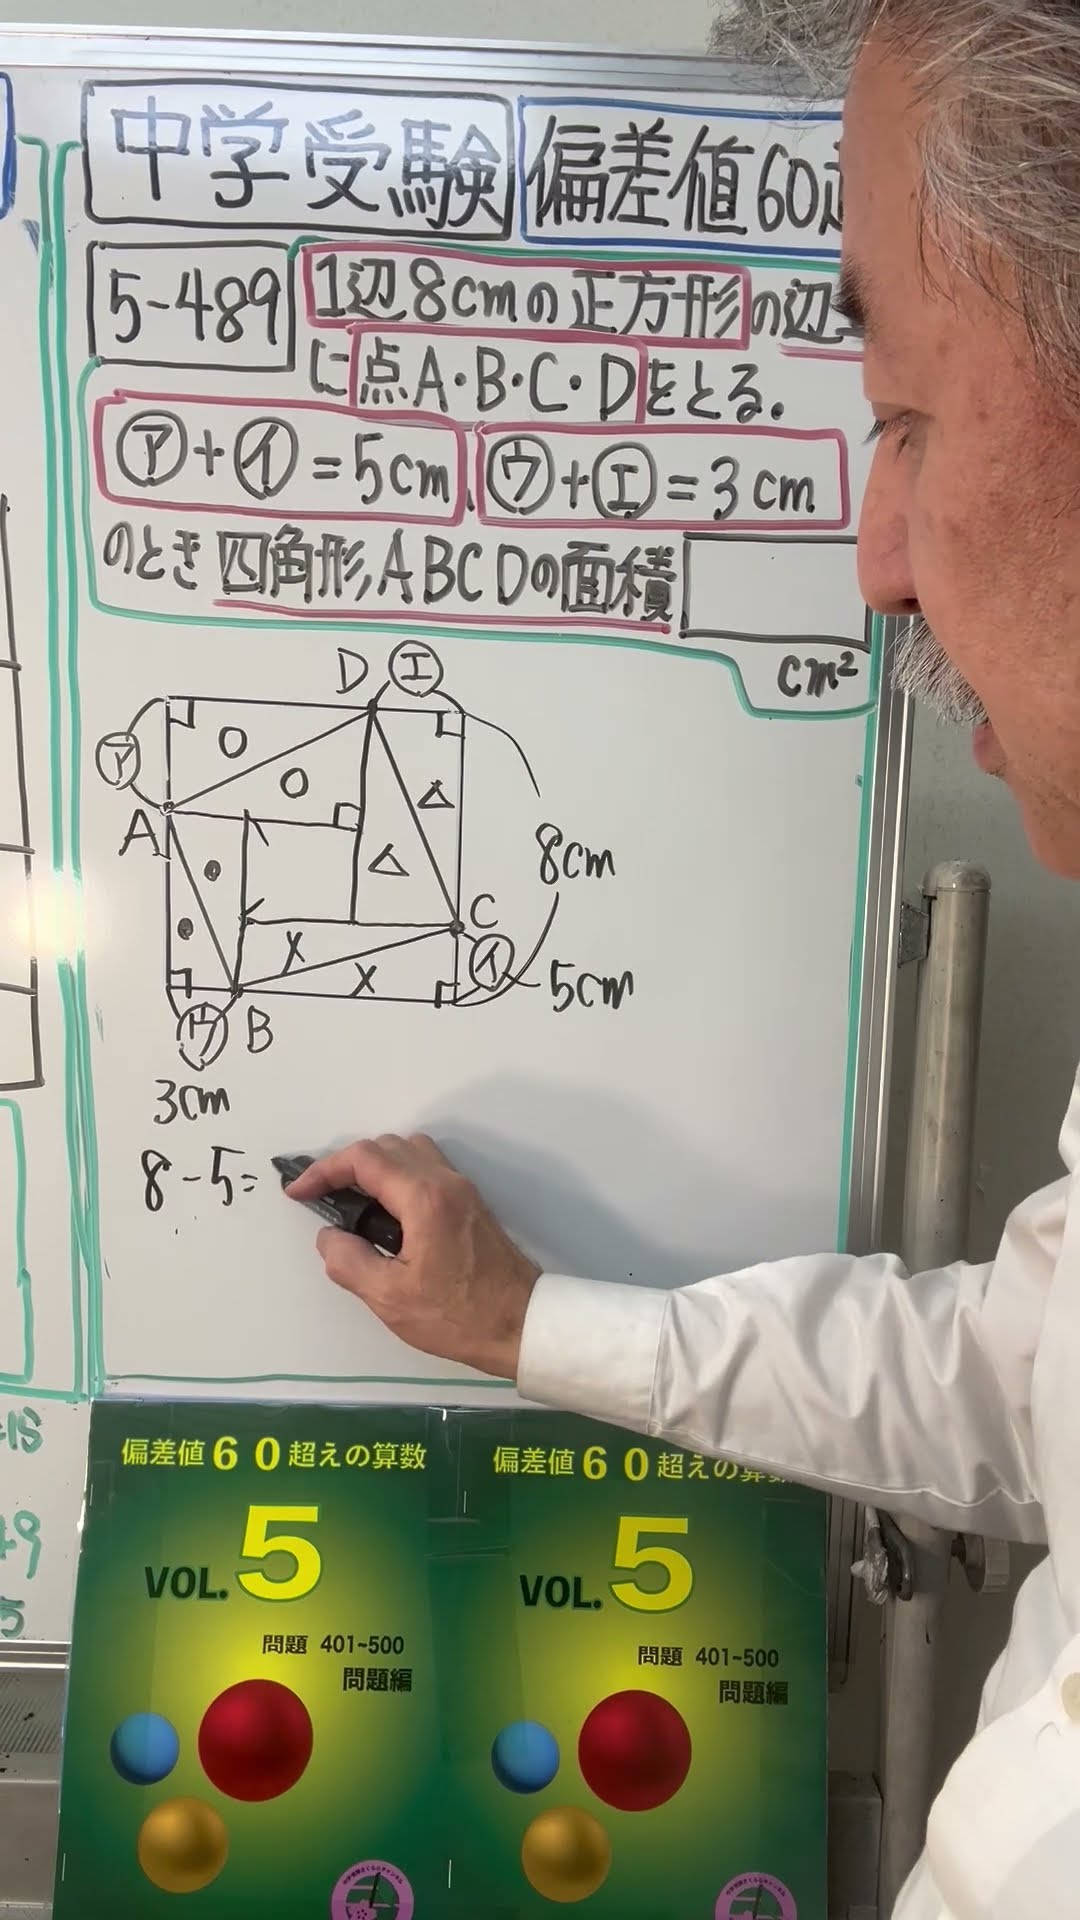 中学受験 偏差値60
5-489 1辺8cmの正方形の辺
に点A・B・C・Dをとる。
㋐+㋑=5cm、㋒+㋓=3cm
のとき四角形ABCDの面積
cm²
D ㋓
㋐
A
8cm
C
㋑ 5cm
㋒ B
3cm
8-5=
=15
49
5
偏差値60超えの算数
VOL.5
問題 401~500
問題編
偏差値60超えの算数
VOL.5
問題 401~500
問題編